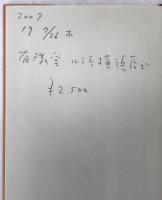 2007
19 7/26 木
有隣堂 ルミネ横浜店で
¥2,500